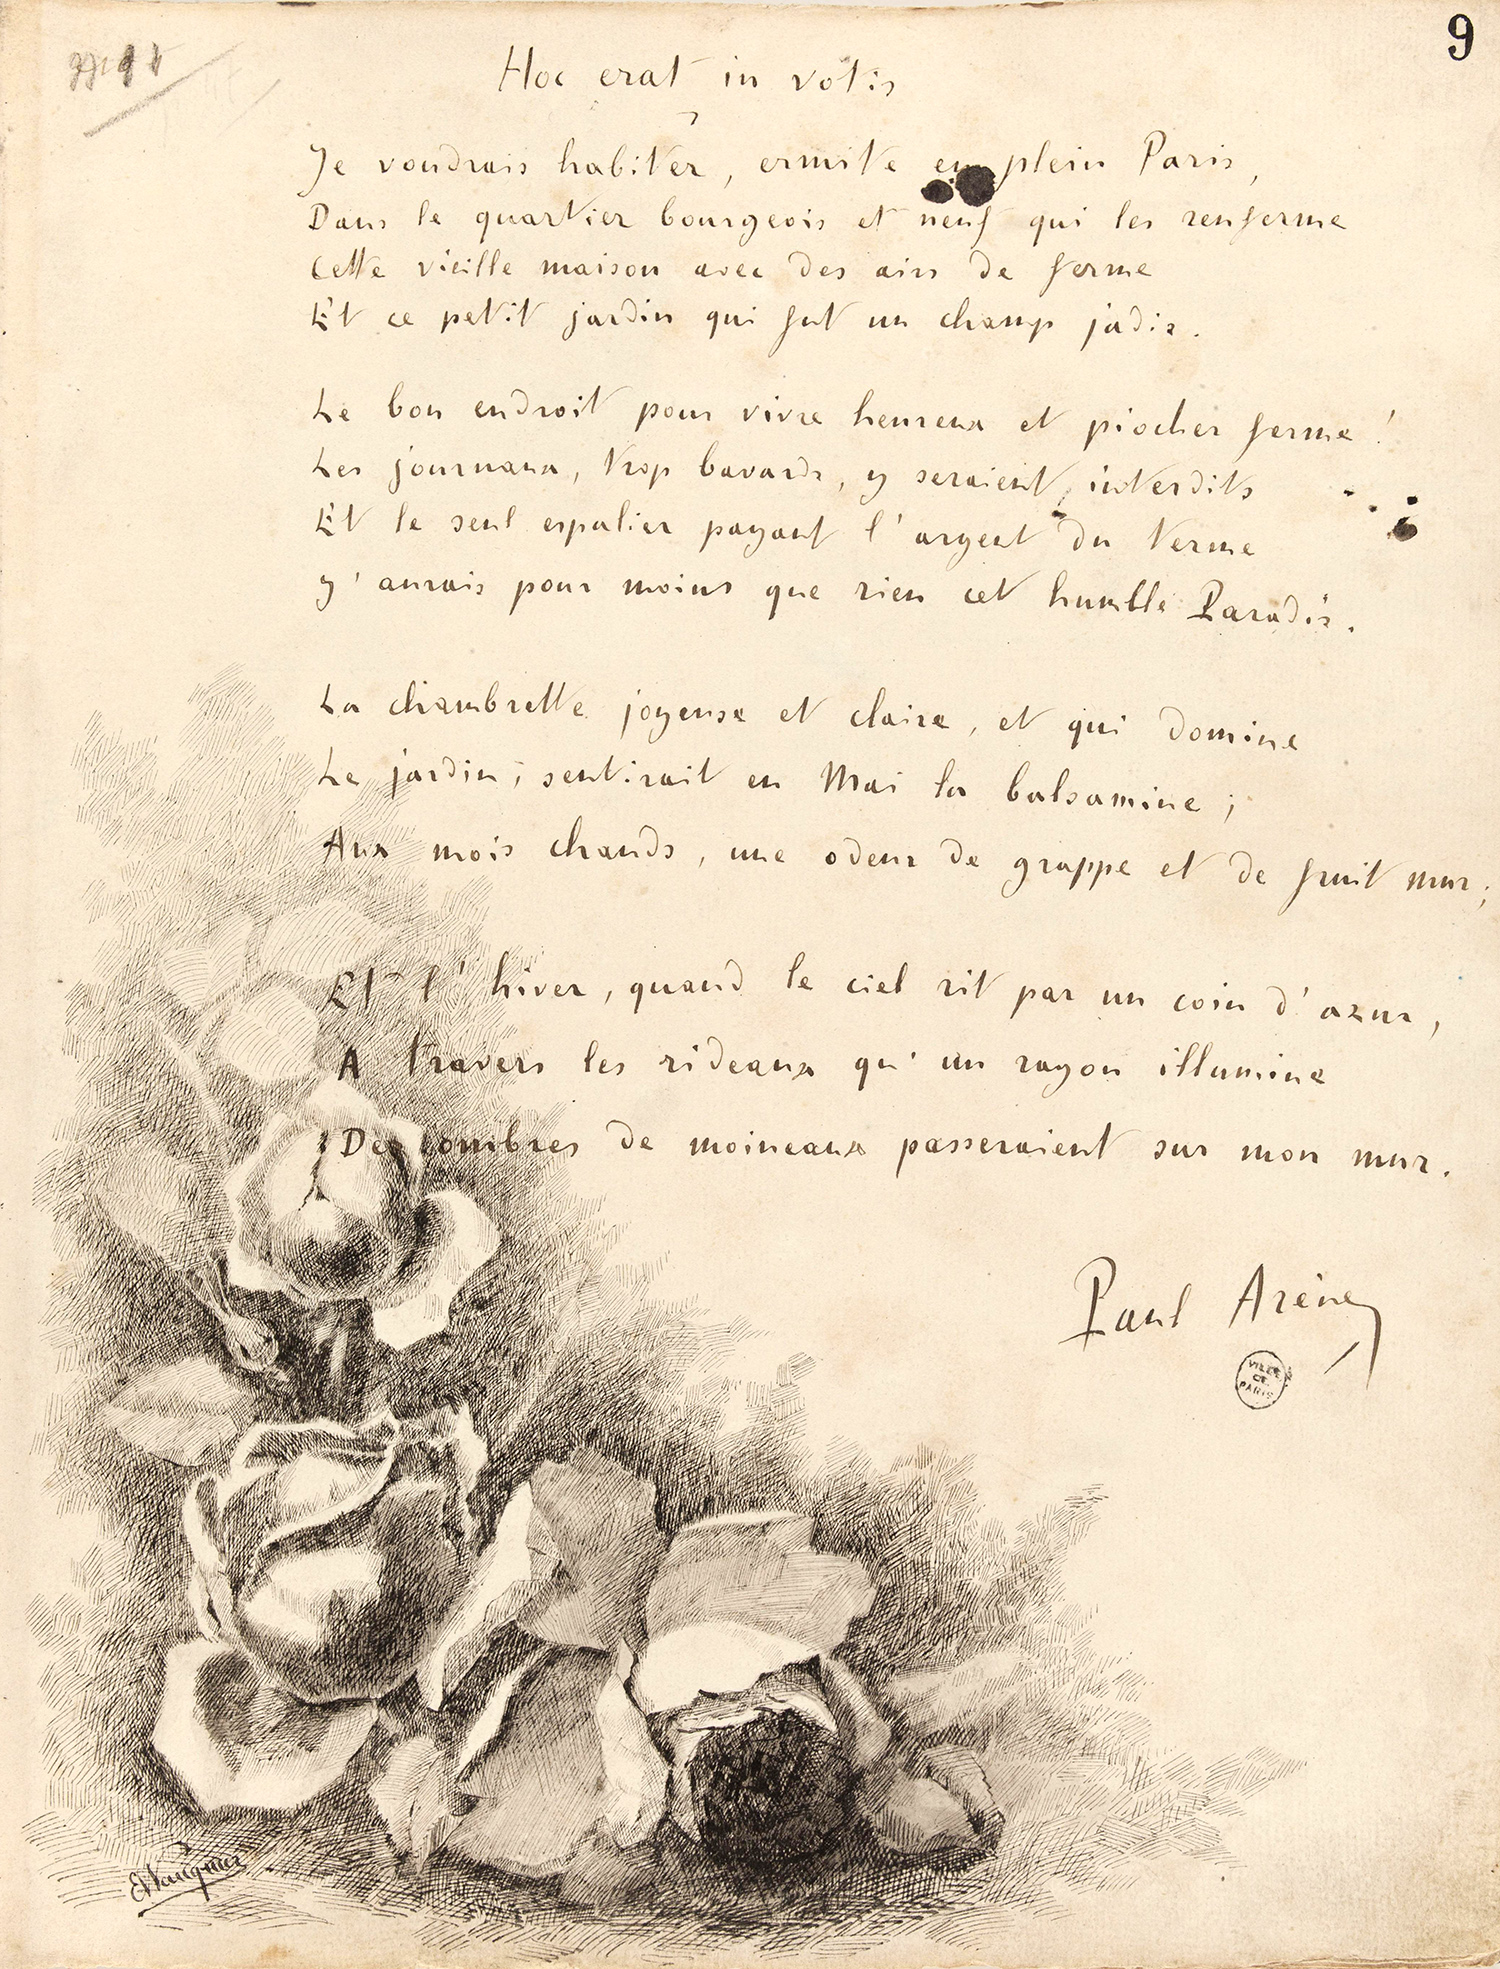 9
Hoc erat in votis
Je voudrais habiter, ermite en plein Paris,
Dans le quartier bourgeois et neuf qui les renferme
Cette vieille maison avec des airs de ferme
Et ce petit jardin qui fut un champ jadis.
Le bon endroit pour vivre heureux et piocher ferme !
Les journaux, trop bavards, y seraient interdits
Et le seul espalier payant l'argent du terme
J'aurais pour moins que rien cet humble Paradis.
La chambrette joyeuse et claire, et qui domine
Le jardin, sentirait en Mai la balsamine ;
Aux mois chauds, une odeur de grappe et de fruit mur ;
Et l'hiver, quand le ciel rit par un coin d'azur,
A travers les rideaux qu'un rayon illumine
Des ombres de moineaux passeraient sur mon mur.
Paul Arène
VILLE
DE
PARIS